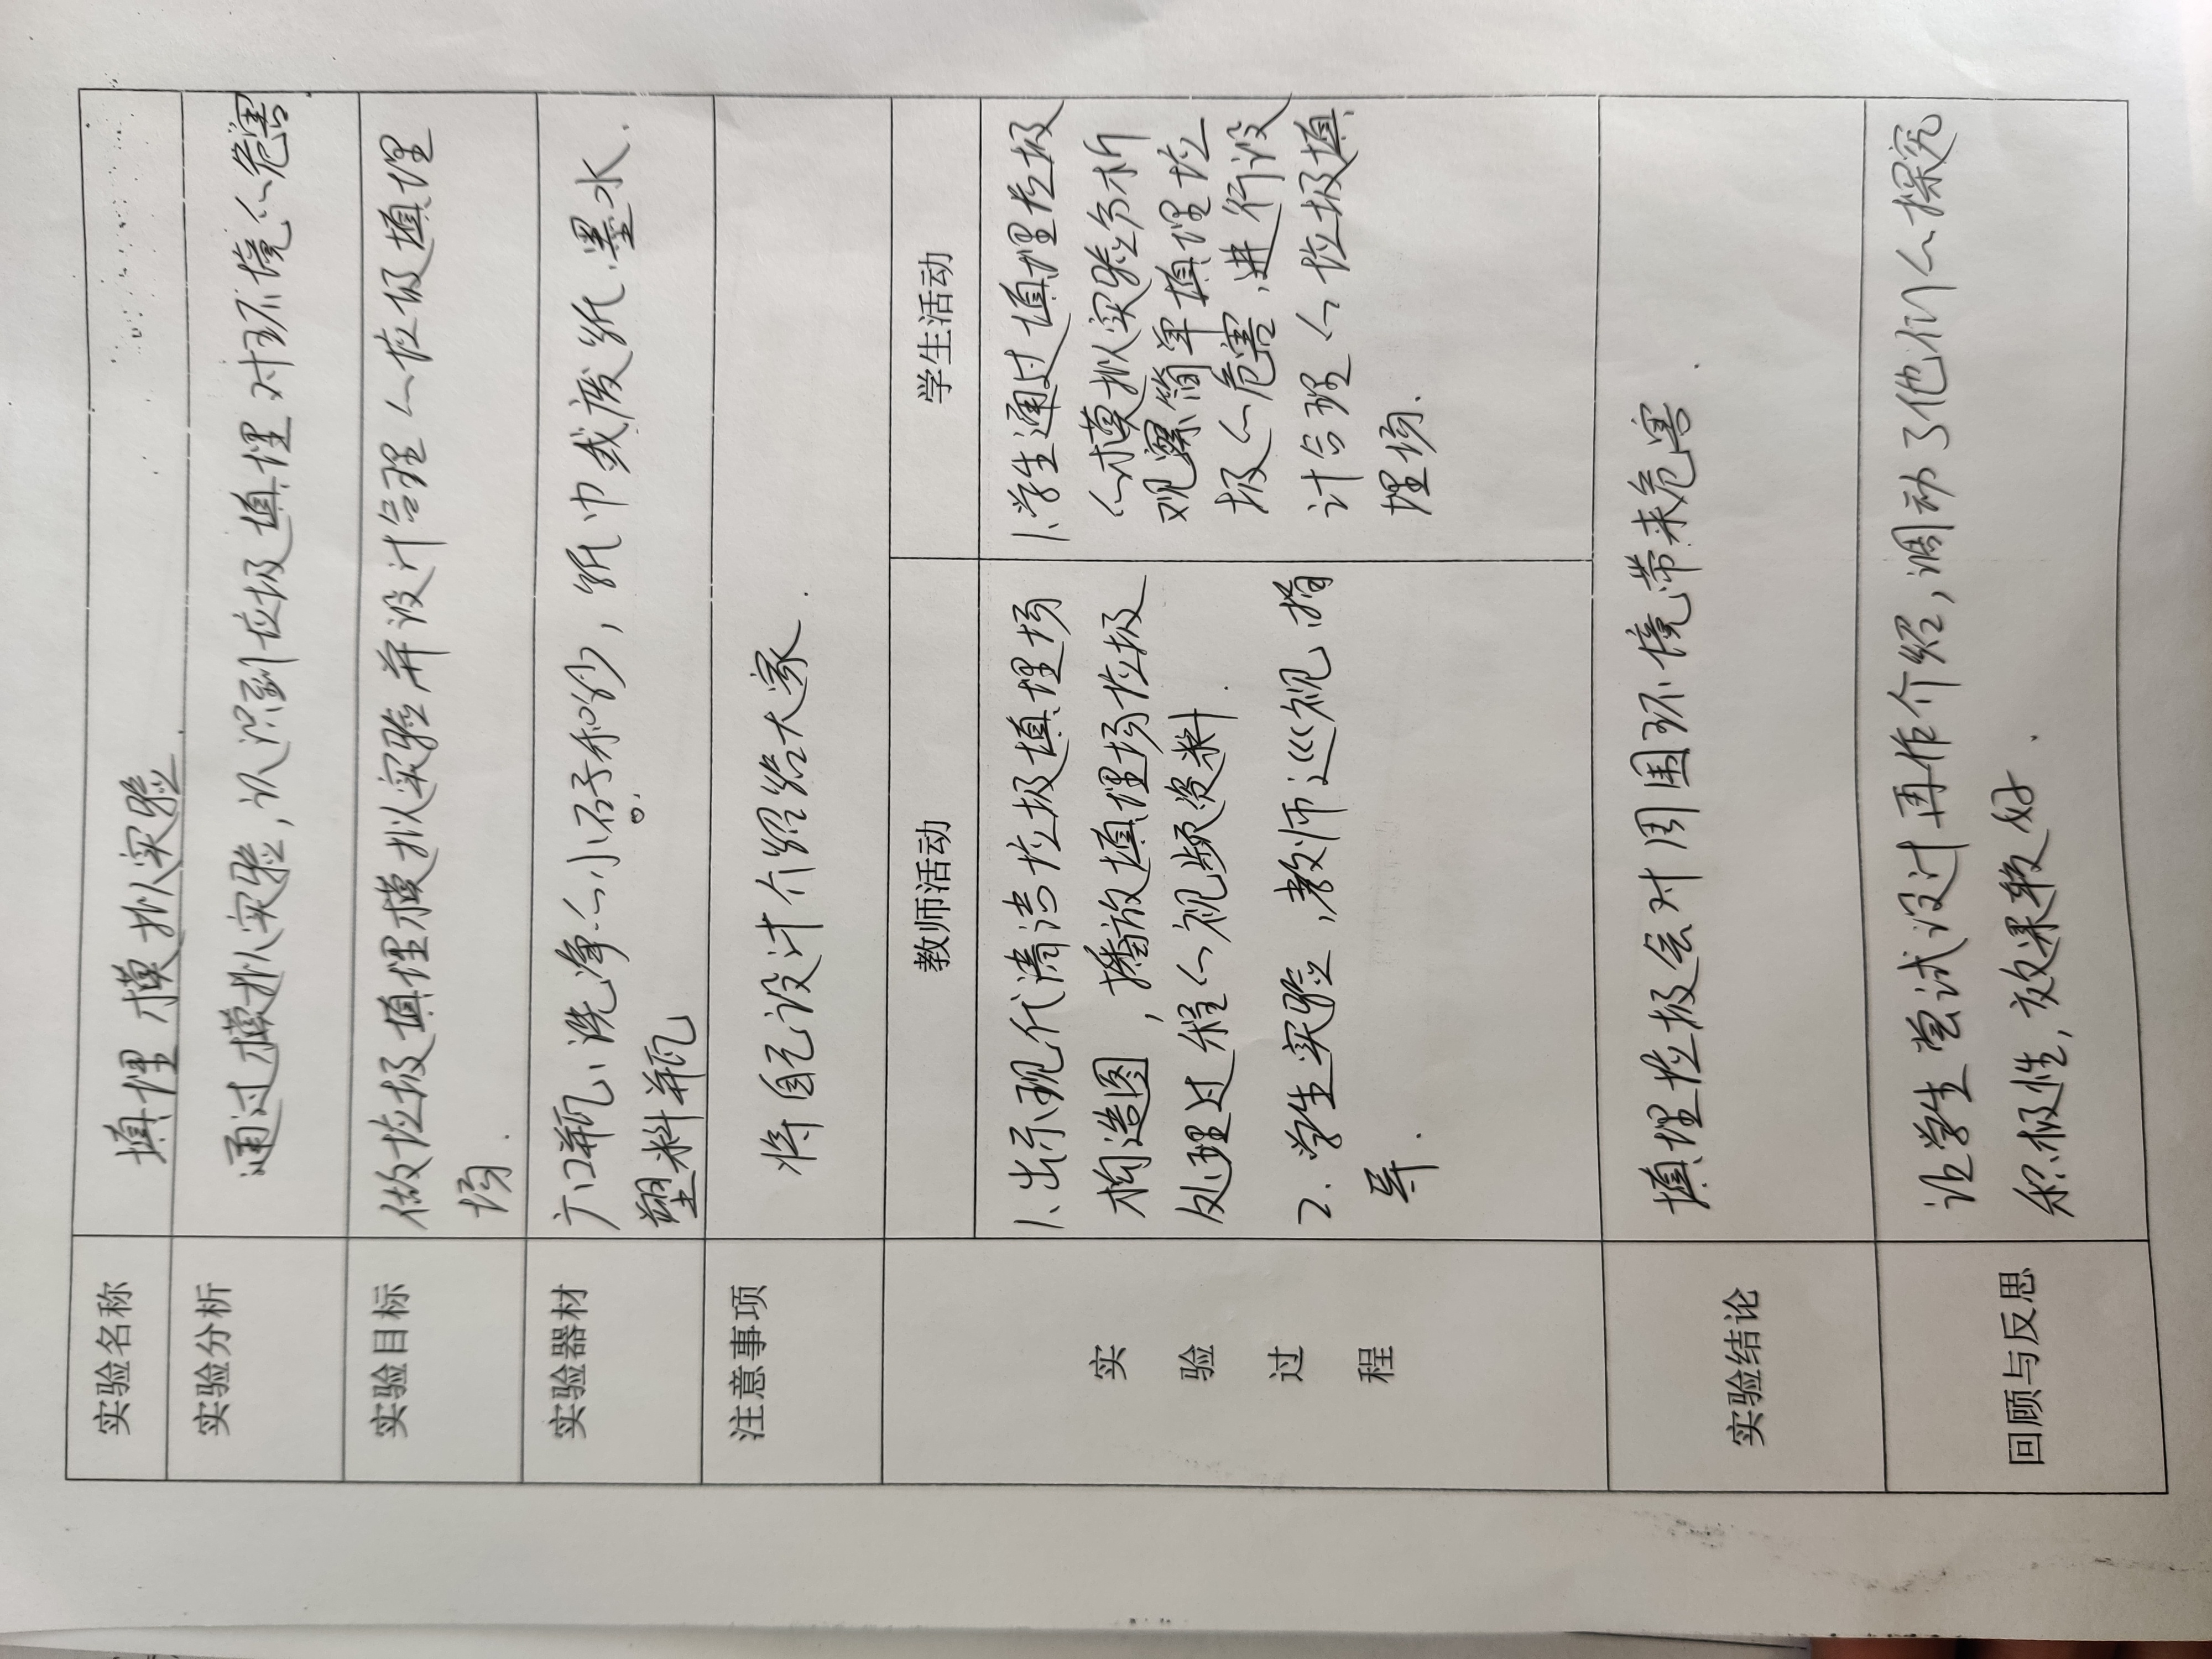 实验名称 填埋模拟实验
实验分析 通过模拟实验，认识到垃圾填埋对环境的危害
实验目标 做垃圾填埋模拟实验并设计合理的垃圾填埋
场.
实验器材 广口瓶、洗净的小石子和沙，纸巾或废纸、墨水.
塑料瓶
注意事项 将自己设计介绍给大家.
实验过程
教师活动
1、出示现代清洁垃圾填埋场
构造图，播放填埋场垃圾
处理过程的视频资料.
2. 学生实验，教师巡视，指
导.
学生活动
1、学生通过填埋垃圾
的模拟实验分析
观察简单填埋垃
圾的危害，进行设
计合理的垃圾填
埋场.
实验结论 填埋垃圾会对周围环境带来危害.
回顾与反思 让学生尝试设计再作介绍，调动了他们的探究
积极性，效果较好.